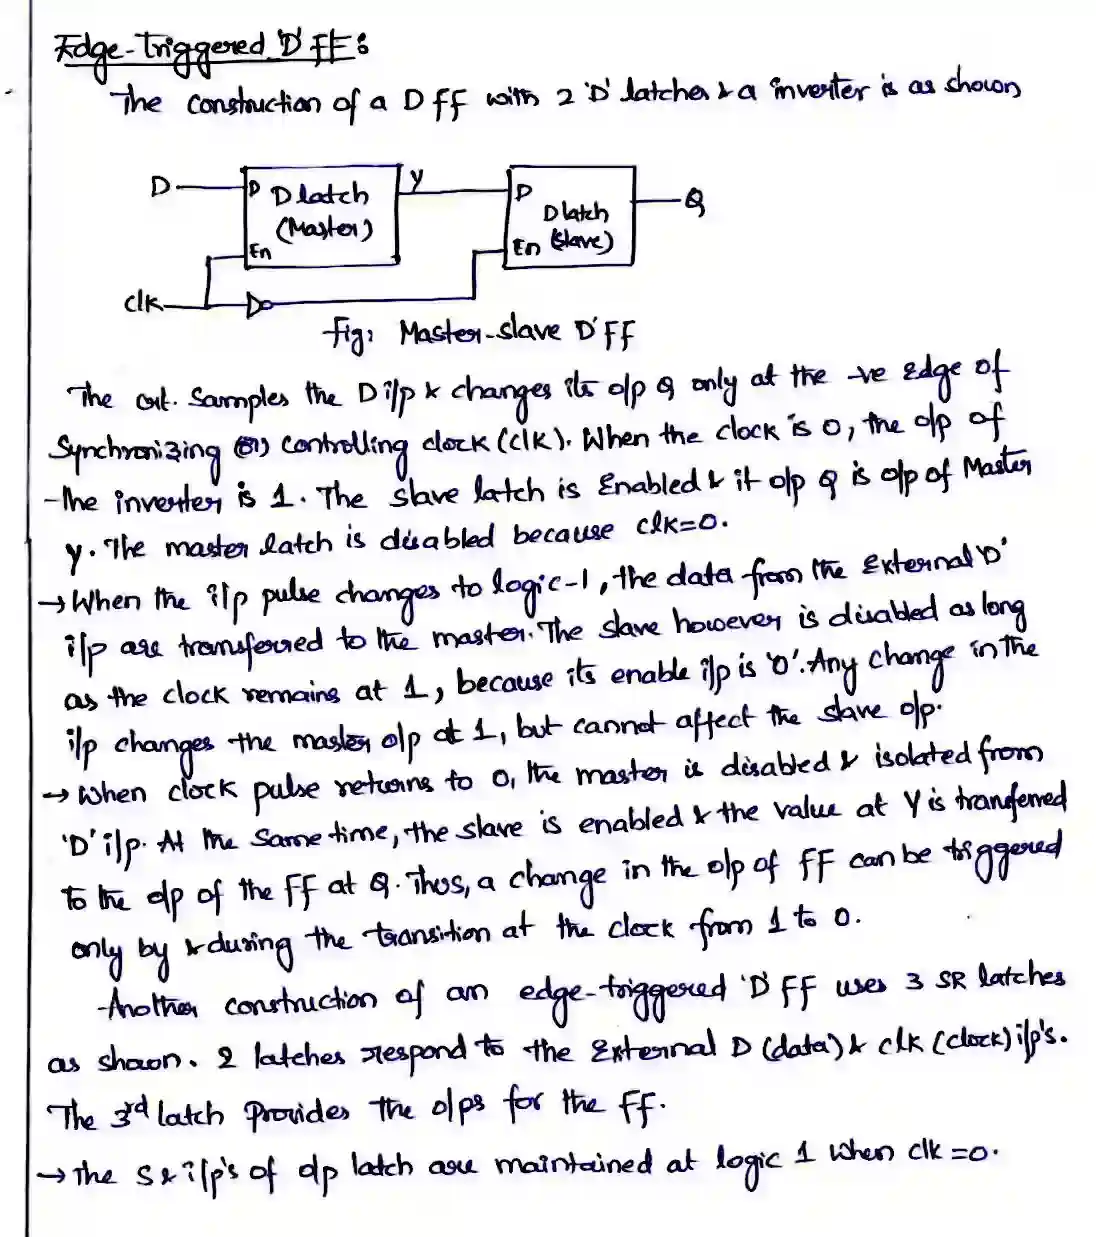 Edge-Triggered 'D' FF:
The construction of a D FF with 2 'D' latches & a inverter is as shown
D
D D latch
(Master)
En
Y
D
D latch
En (Slave)
Q
clk
Fig: Master-slave D'FF
The ckt. Samples the D i/p & changes its o/p Q only at the -ve Edge of
Synchronizing (or) controlling clock (clk). When the clock is 0, the o/p of
the inverter is 1. The slave latch is Enabled & it o/p Q is o/p of Master
y. The master latch is disabled because clk=0.
→ When the i/p pulse changes to logic-1, the data from the External 'D'
i/p are transferred to the master. The slave however is disabled as long
as the clock remains at 1, because its enable i/p is '0'. Any change in the
i/p changes the master o/p at 1, but cannot affect the slave o/p.
→ When clock pulse returns to 0, the master is disabled & isolated from
'D' i/p. At the Same time, the slave is enabled & the value at Y is transferred
to the o/p of the FF at Q. Thus, a change in the o/p of FF can be triggered
only by & during the transition at the clock from 1 to 0.
Another construction of an edge-triggered 'D' FF uses 3 SR latches
as shown. 2 latches respond to the External D (data) & clk (clock) i/p's.
The 3rd latch Provides the o/ps for the FF.
→ The S & i/p's of o/p latch are maintained at logic 1 when clk =0.